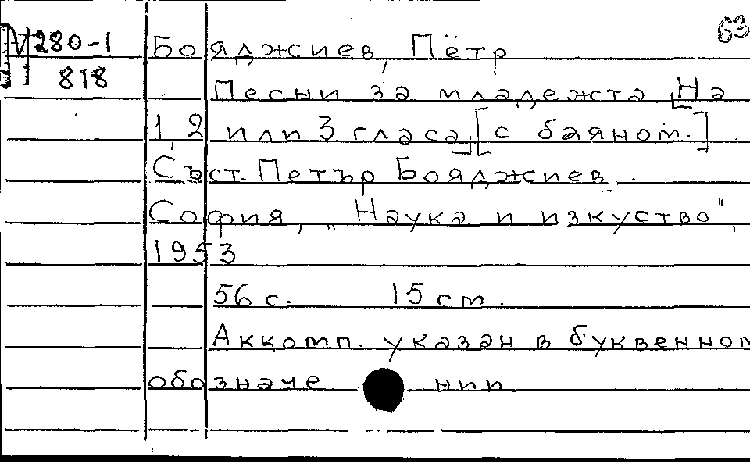 63
V 280-1 Бояджиев, Пётр
818
Песни за младежта [На
1, 2 или 3 гласа] [с баяном.]
Съст. Петър Бояджиев.
София, "Наука и изкуство",
1953
56 с. 15 см.
Аккомп. указан в буквенном
обозначении